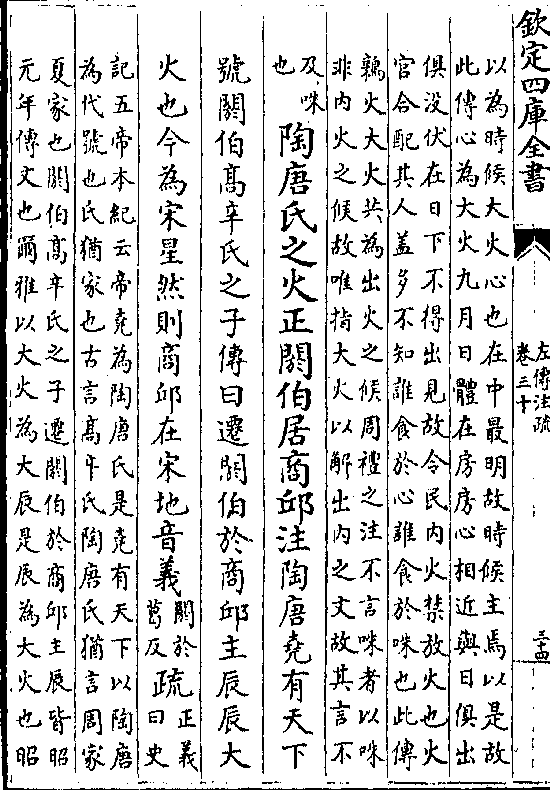 欽定四庫全書
左傳注疏
卷三十
三十四
以為時候大火心也在中最明故時候主焉以是故
此傳心為大火九月日體在房房心相近與日俱出
俱没伏在日下不得出見故令民内火禁放火也火
官合配其人蓋多不知誰食於心誰食於咮也此傳
鶉火大火共為出火之候周禮之注不言咮者以咮
非内火之候故唯指大火以解出内之文故其言不
及咮
也
陶唐氏之火正閼伯居商邱注陶唐堯有天下
號閼伯髙辛氏之子傳曰遷閼伯於商邱主辰辰大
火也今為宋星然則商邱在宋地音義
閼於
葛反
疏
正義
曰史
記五帝本紀云帝堯為陶唐氏是堯有天下以陶唐
為代號也氏猶家也古言髙辛氏陶唐氏猶言周家
夏家也閼伯髙辛氏之子遷閼伯於商邱主辰皆昭
元年傳文也爾雅以大火為大辰是辰為大火也昭